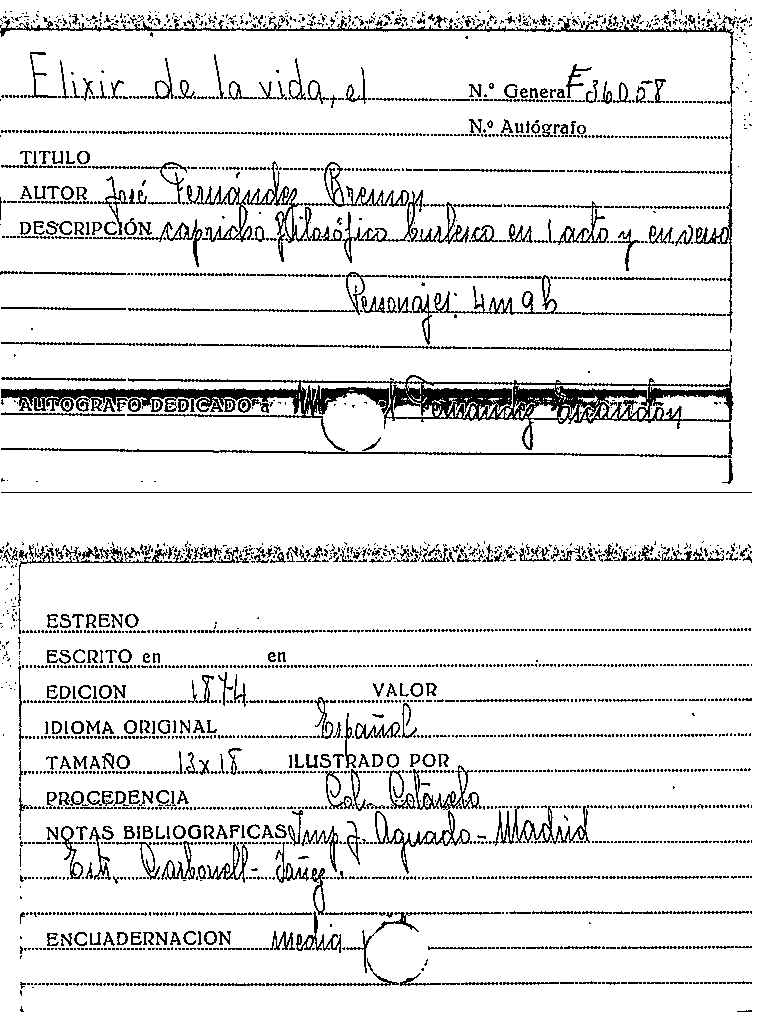 Elixir de la vida, el
N.º General F 36058
N.º Autógrafo
TITULO
AUTOR José Fernández Bremon
DESCRIPCIÓN capricho filosófico burlesco en 1 acto y en verso
Personajes: 4m 9h
AUTOGRAFO DEDICADO a Fernández Escandón
ESTRENO
ESCRITO en en
EDICION 1874 VALOR
IDIOMA ORIGINAL Español
TAMAÑO 13x18 ILUSTRADO POR
PROCEDENCIA Col. Cotarelo
NOTAS BIBLIOGRAFICAS Imp. J. Aguado - Madrid
Estr. Carbonell - Yáñez.
ENCUADERNACION media